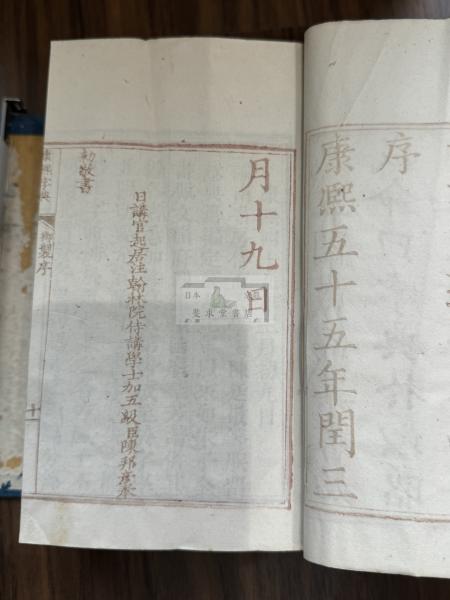 序
康熙五十五年閏三
月十九日
日講官起居注翰林院侍講學士加五級臣陳邦彥奉
勑敬書
康熙字典
御製序
十一
日本
斐求堂書店